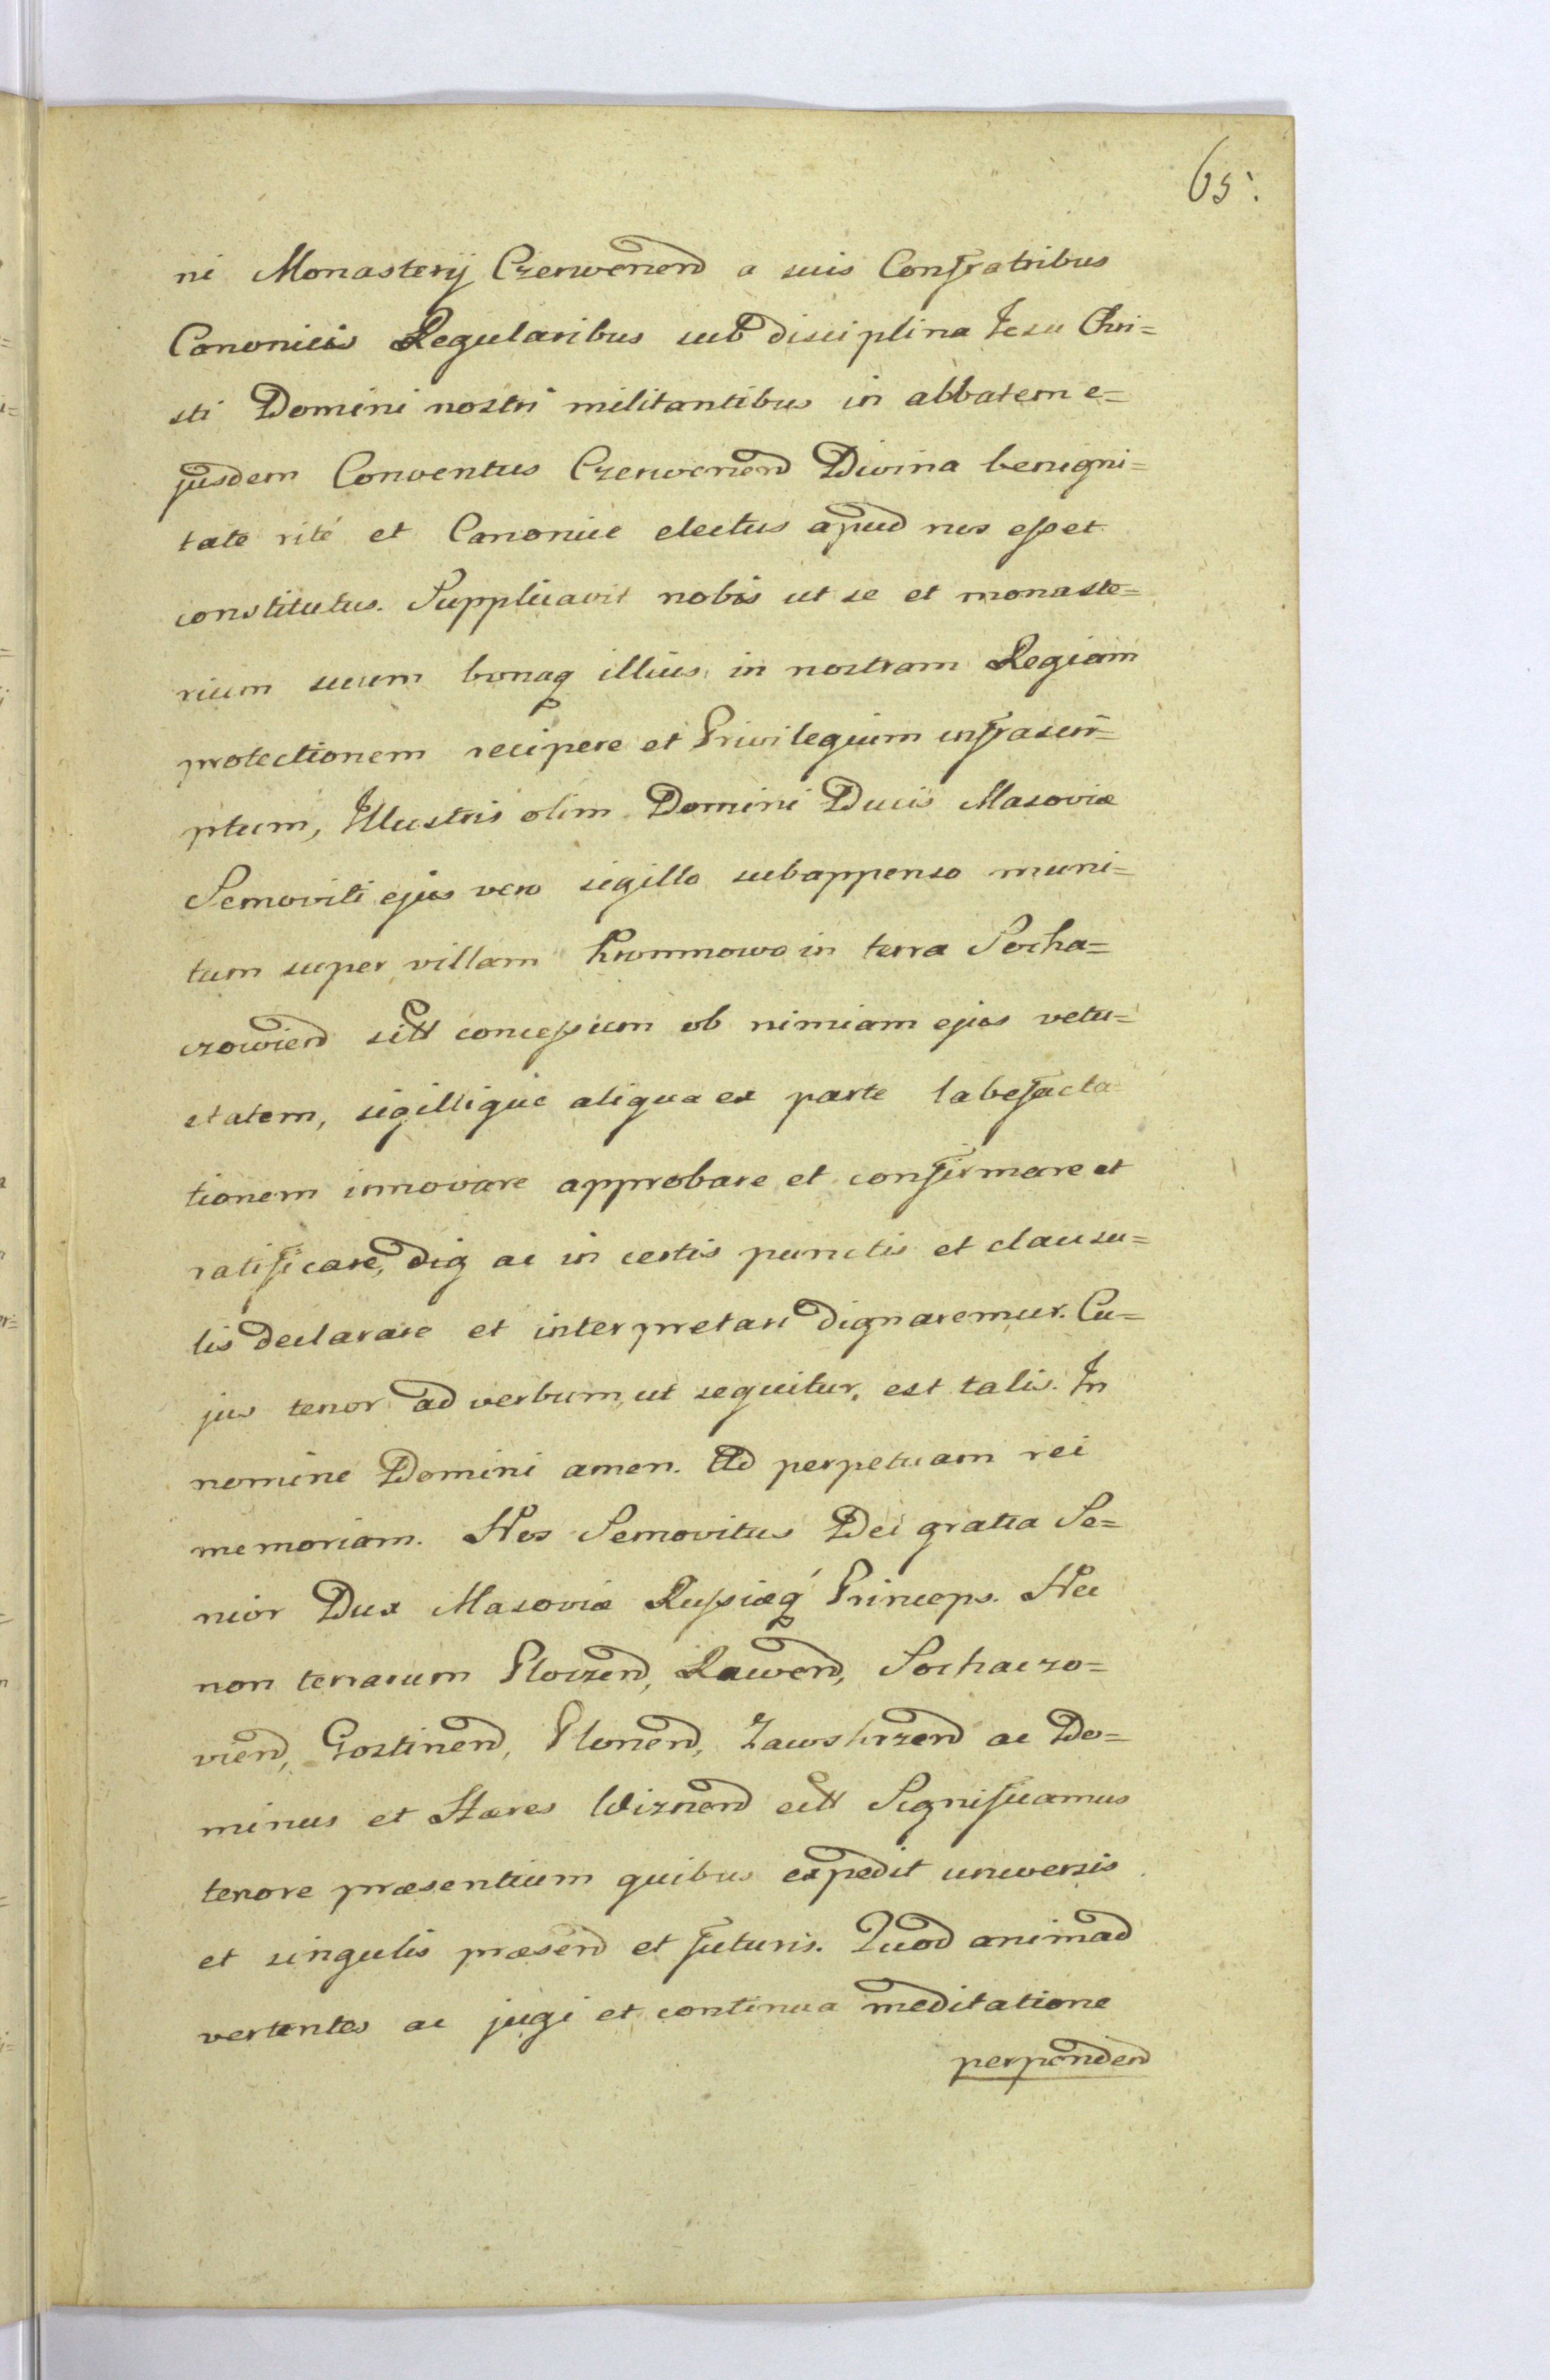 65.
ni Monasterij Czerwenend a suis Confratribus
Canonicis Regularibus sub disciplina Jesu Chri=
sti Domini nostri militantibus in abbatem e=
jusdem Conventus Czerwenend Divina benigni=
tate rité et Canonice electus apud nos eſset
constitutus. Supplicavit nobis ut se et monaste=
rium suum bonaq illius in nostram Regiam
protectionem recipere et Privilegium infrascri=
ptum, Illustris olim Domini Ducis Masoviæ
Semoviti ejus vero sigillo subappenso muni=
tum super villam in terra Socha=
czowiend sitt conceſsum ob nimiam ejus vetu=
statem, sigillique aliqua ex parte labefacta
tionem innovare approbare et confirmare et
ratificare, diq ac in certis punctis et clausu=
lis declarare et interpretari dignaremur. Cu=
jus tenor ad verbum, ut sequitur, est talis. In
nomine Domini amen. Ad perpetuam rei
memoriam. Nos Semovitus Dei gratia Se=
nior Dux Masoviæ Ruſsiæq Princeps. Nec
non terrarum Plocend, Rawend, Sochaczo=
viend, Gostinend, Plonend, Zawskrzend ac Do=
minus et Hæres Wiznend ectt Significamus
tenore præsentium quibus expedit universis
et singulis præsend et futuris. Quod animad
vertentes ac jugi et continua meditatione
perpendend